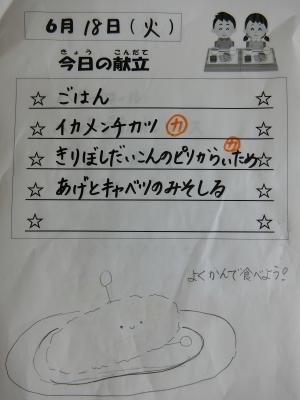 6月18日(火)
きょう こんだて
今日の献立
☆ ごはん ☆
☆ イカメンチカツ カ ☆
カ
☆ きりぼしだいこんのピリからいため ☆
☆ あげとキャベツのみそしる ☆
☆ ☆
よくかんで食べよう!